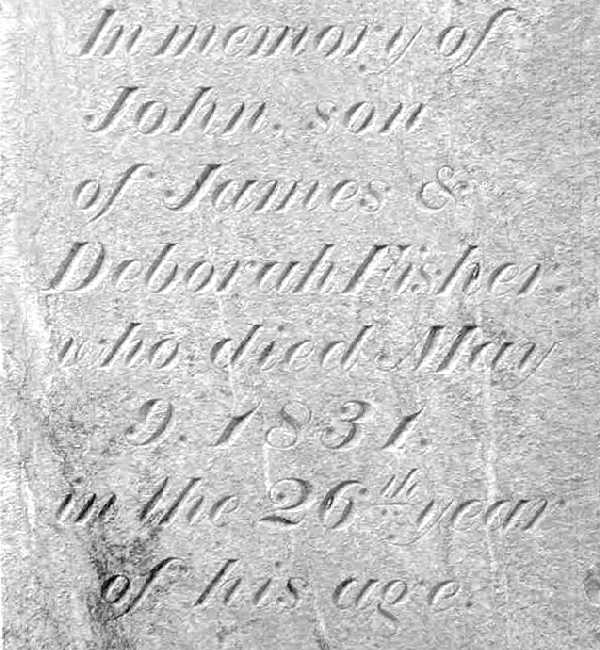 In memory of
John, son
of James &
Deborah Fisher.
who died May
9. 1831.
in the 26th year
of his age.